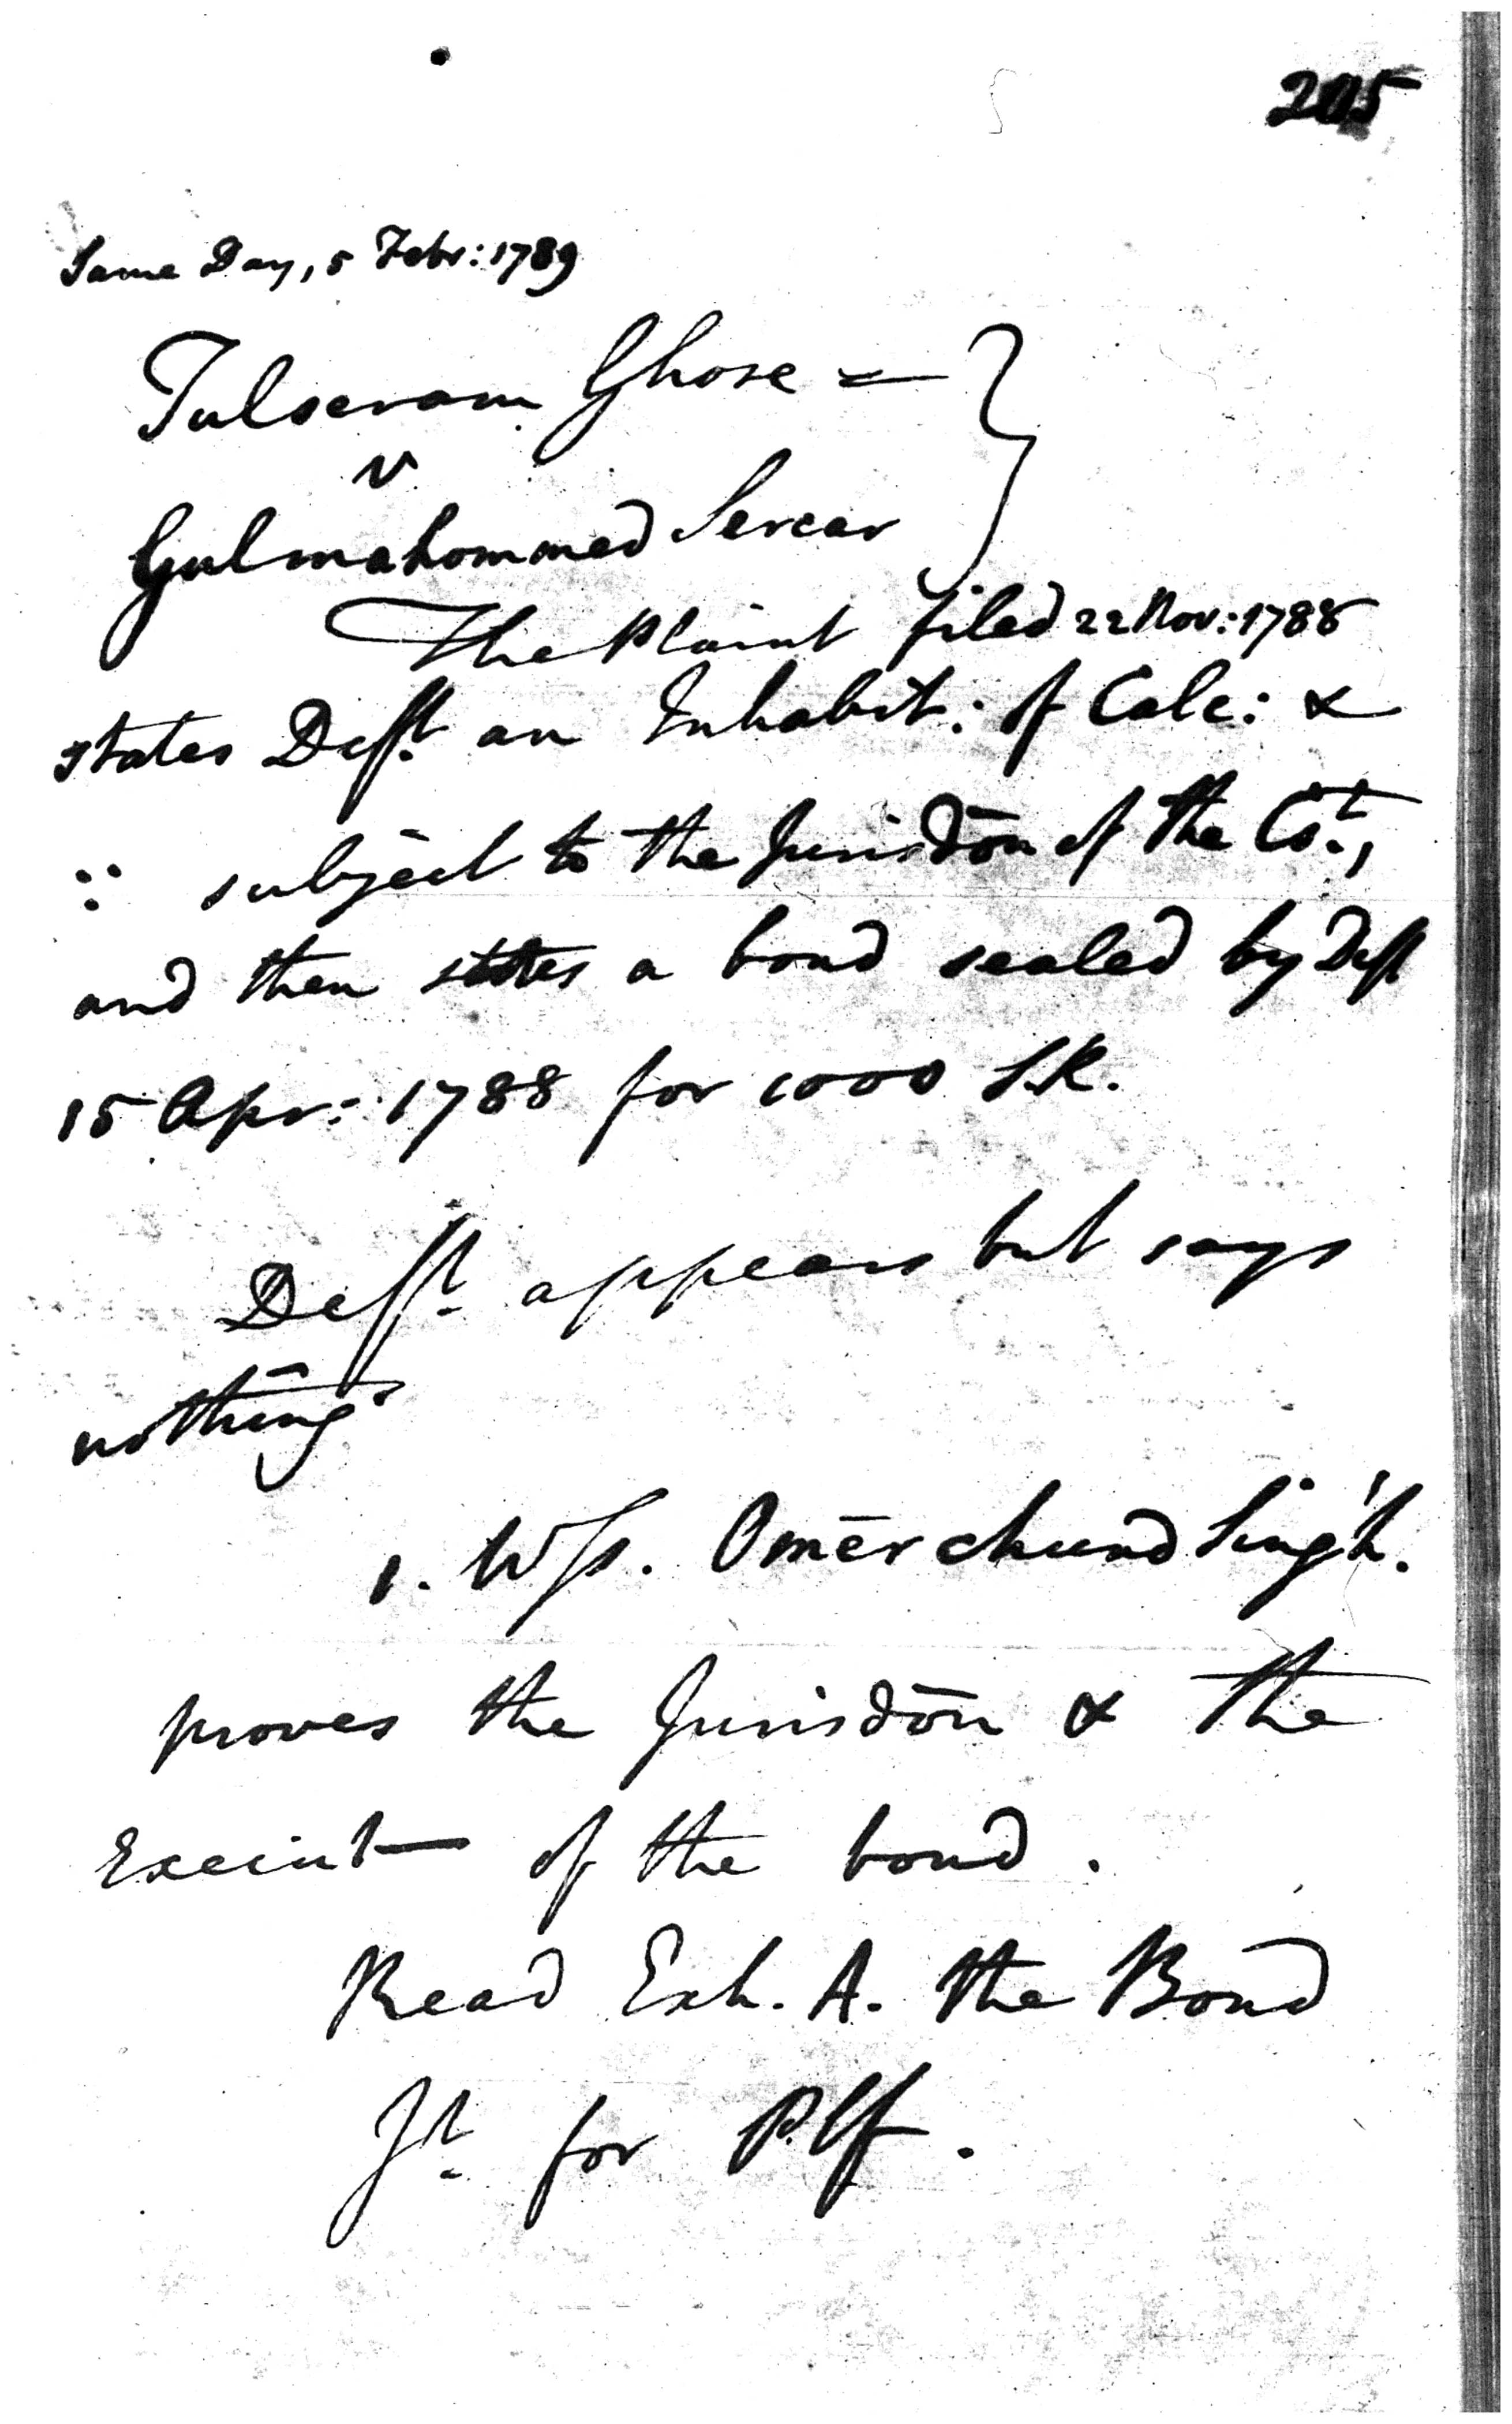 205
Same Day, 5 Febr: 1789
Tulseram Ghose =
v
Gulmahommed Sercar
The Plaint filed 22 Nov: 1788
states Defft. an Inhabit: of Calc: &
∵ subject to the Jurisdōn of the Cot.,
and then states a bond sealed by Deft
15 Apr: 1788 for 1000 S.R.
Defft. appears but says
nothing.
1. Wss. Omērchund Singh.
proves the Jurisdōn & the
Execut— of the bond.
Read Exh. A. the Bond
Jt. for Plf.